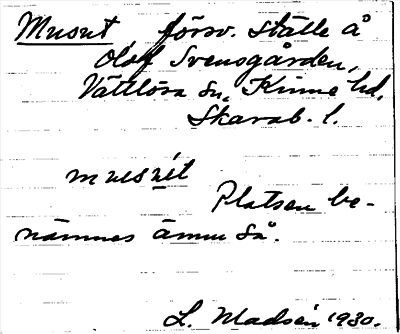 Musut, försv. ställe å
Olof Svensgården,
Vättlösa sn, Kinne hd,
Skarab. l.
Platsen be-
nämnes ännu så.
L. Madsén 1930.